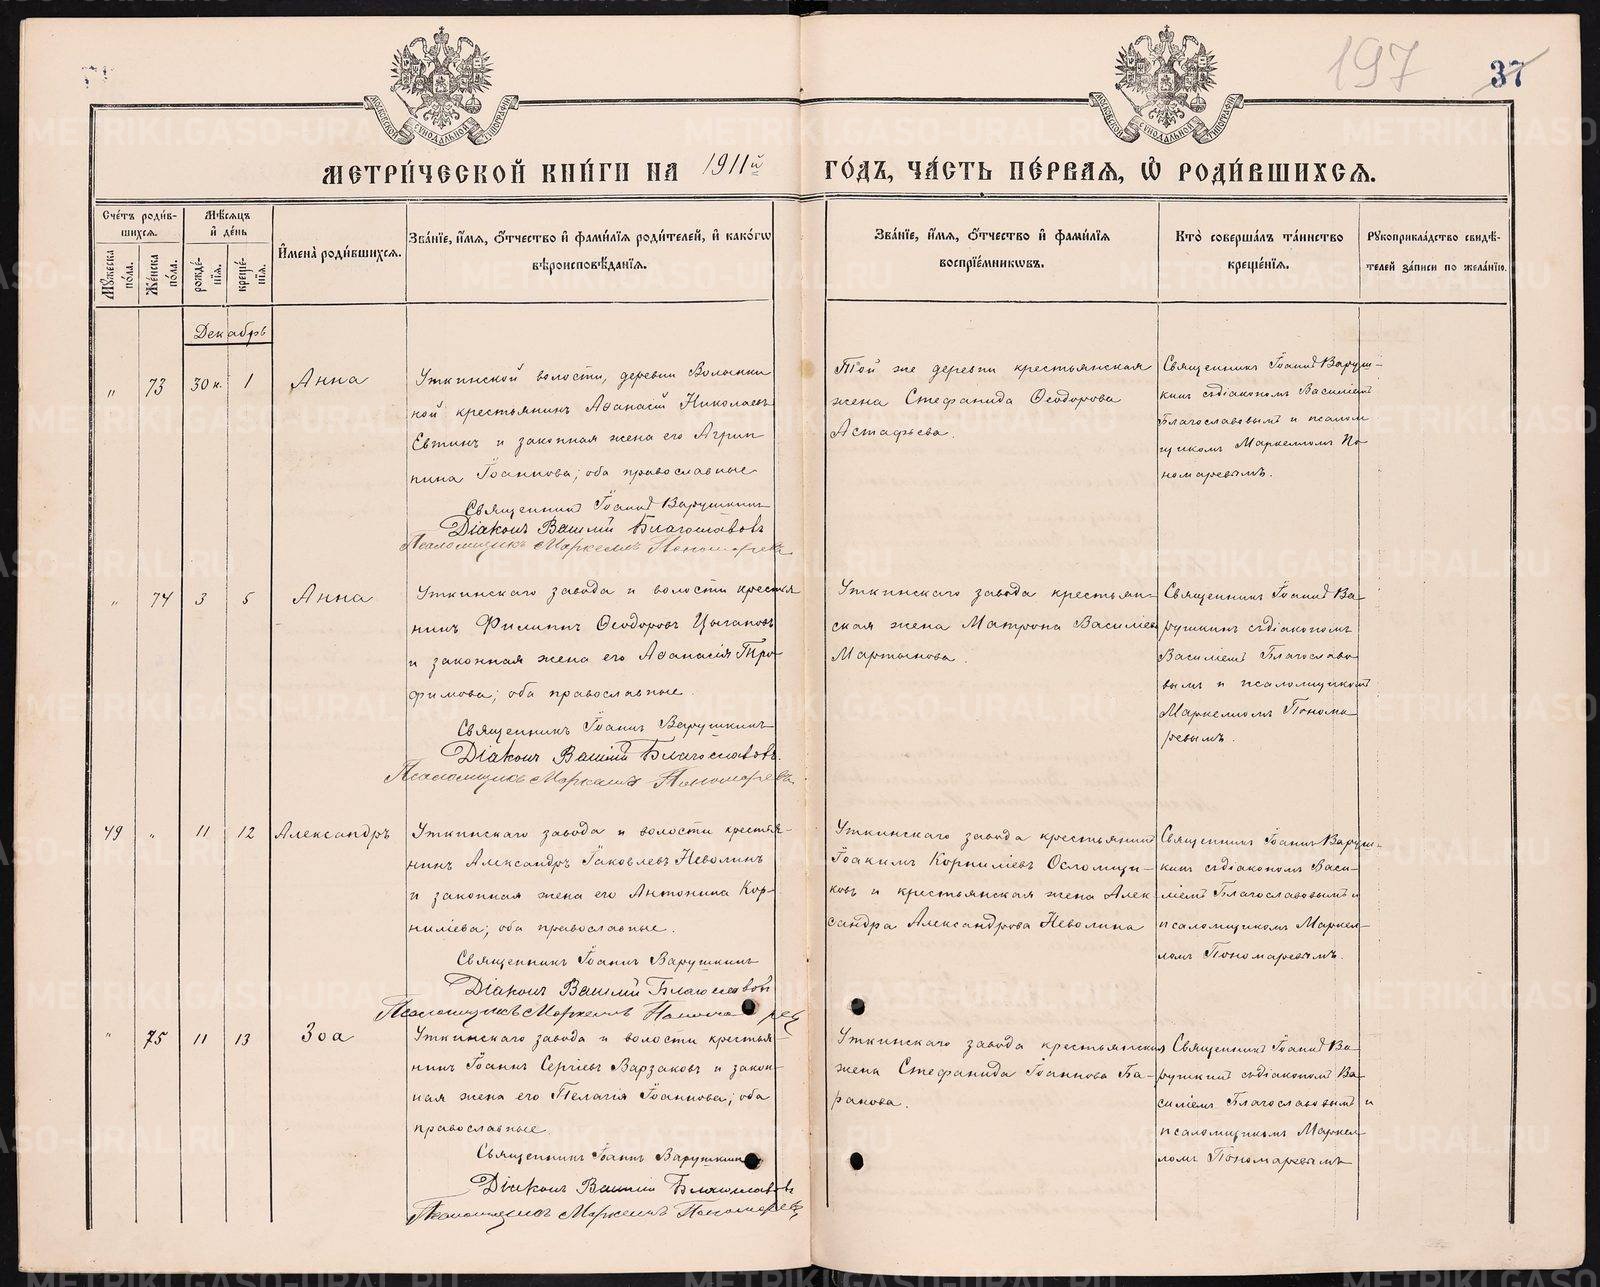 197
37
МОСКОВСКОЙ СѴНОДАЛЬНОЙ ТИПОГРАФІИ
МОСКОВСКОЙ СѴНОДАЛЬНОЙ ТИПОГРАФІИ
МЕТРИ́ЧЕСКОЙ КНИ́ГИ НА 1911й ГО́ДЪ, ЧА́СТЬ ПЕ́РВАѦ, Ѡ҆ РОДИ́ВШИХСѦ.
Сче́тъ роди́в-
шихсѧ.
Мꙋ́жеска по́ла.
Же́нска по́ла.
Мѣ́сѧцъ
и҆ де́нь
рожде́-
нїѧ.
креще́-
нїѧ.
И҆мена̀ роди́вшихсѧ.
Зва́нїе, и҆́мѧ, ѻ҆́тчество и҆ фами́лїѧ роди́телей, и҆ како́гѡ
вѣроисповѣ́данїѧ.
Зва́нїе, и҆́мѧ, ѻ҆́тчество и҆ фами́лїѧ
воспрїе́мникѡвъ.
Кто̀ соверша́лъ та́инство
креще́нїѧ.
Рꙋкоприкла́дство свидѣ́-
телей за́писи по жела́нїю.
Декабрь
" 73 30 н. 1 Анна
Уткинской волости, деревни Волынки
ной крестьянинъ Аѳанасій Николаевъ
Евтинъ и законная жена его Агрип
пина Іоаннова; оба православные
Священникъ Іоаннъ Варушкинъ
Діаконъ Василій Благославовъ
Псаломщикъ Маркеллъ Пономаревъ
Той же деревни крестьянская
жена Стефанида Ѳеодорова
Астафьева.
Священникъ Іоаннъ Варуш-
кинъ съ діакономъ Василіемъ
Благославовымъ и псалом
щикомъ Маркелломъ По
номаревымъ.
" 74 3 5 Анна
Уткинскаго завода и волости крестья
нинъ Филиппъ Ѳеодоровъ Цыгановъ
и законная жена его Аѳанасія Тро
фимова; оба православные.
Священникъ Іоаннъ Варушкинъ
Діаконъ Василій Благославовъ.
Псаломщикъ Маркеллъ Пономаревъ
Уткинскаго завода крестьян-
ская жена Матрона Василіева
Мартынова.
Священникъ Іоаннъ Ва
рушкинъ съ діакономъ
Василіемъ Благославо
вымъ и псаломщикомъ
Маркелломъ Понома
ревымъ.
49 " 11 12 Александръ
Уткинскаго завода и волости крестья-
нинъ Александръ Іаковлевъ Неволинъ
и законная жена его Антонина Кор-
ниліева; оба православные.
Священникъ Іоаннъ Варушкинъ
Діаконъ Василій Благославовъ
Псаломщикъ Маркеллъ Пономаревъ
Уткинскаго завода крестьянинъ
Іоакимъ Корниліевъ Осломщи-
ковъ и крестьянская жена Алек
сандра Александрова Неволина
Священникъ Іоаннъ Варуш-
кинъ съ діакономъ Васи-
ліемъ Благославовымъ и
псаломщикомъ Маркел-
ломъ Пономаревымъ.
" 75 11 13 Зоа
Уткинскаго завода и волости крестья-
нинъ Іоаннъ Сергіевъ Варзаковъ и закон-
ная жена его Пелагія Іоаннова; оба
православные
Священникъ Іоаннъ Варушкинъ
Діаконъ Василій Благославовъ
Псаломщикъ Маркеллъ Пономаревъ
Уткинскаго завода крестьянская
жена Стефанида Іоаннова Ба-
ранова.
Священникъ Іоаннъ Ва-
рушкинъ съ діакономъ Ва
силіемъ Благославовымъ и
псаломщикомъ Маркел
ломъ Пономаревымъ